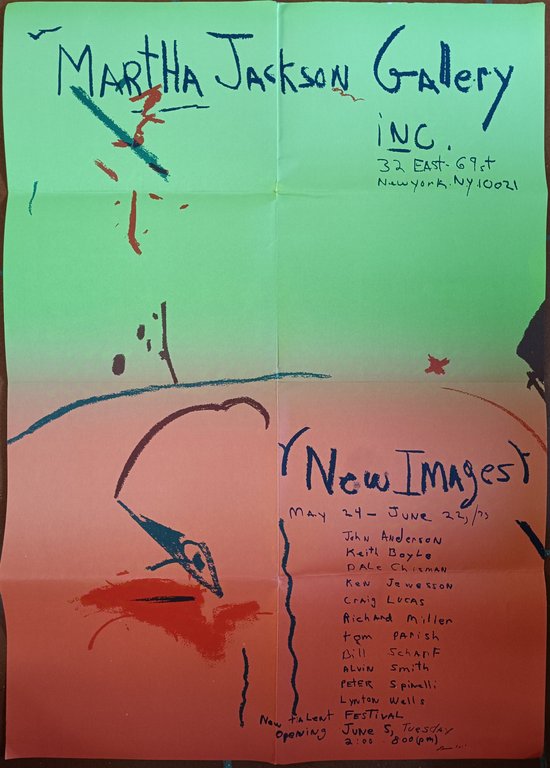 MARTHA JACKSON GALLERY
INC.
32 EAST-69st
New York. NY. 10021
(New Images)
MAY 24 - JUNE 22, /73
John Anderson
Keith Boyle
DALe Chisman
Ken Jewesson
Craig LUCAS
RichARD Miller
tom PARISH
Bill SchARF
ALVIN Smith
PETER Spinelli
Lynton Wells
New tALENT FESTIVAL
Opening JUNE 5, Tuesday
2:00 - 8:00 (pm)